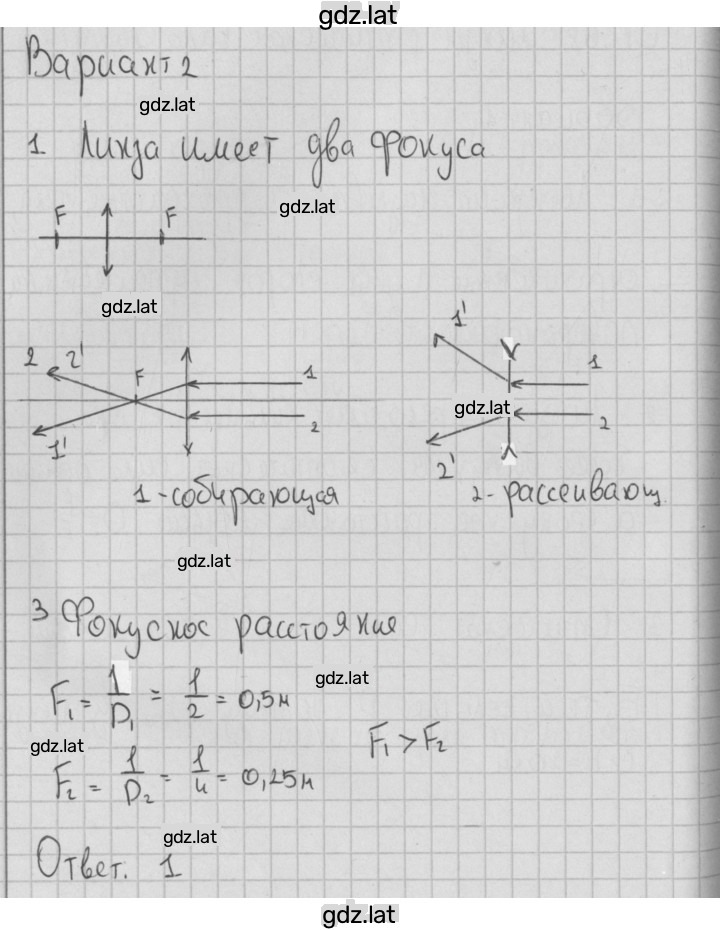 gdz.lat
Вариант 2
gdz.lat
1 Линза имеет два фокуса
gdz.lat
F F
gdz.lat
2 2' F 1
1' 2
1' 1
gdz.lat
2' 2
1-собирающая 2-рассеивающ
gdz.lat
3 Фокусное расстояние
gdz.lat
F₁ = 1/D₁ = 1/2 = 0,5м
F₁ > F₂
gdz.lat
F₂ = 1/D₂ = 1/4 = 0,25м
gdz.lat
Ответ. 1
gdz.lat